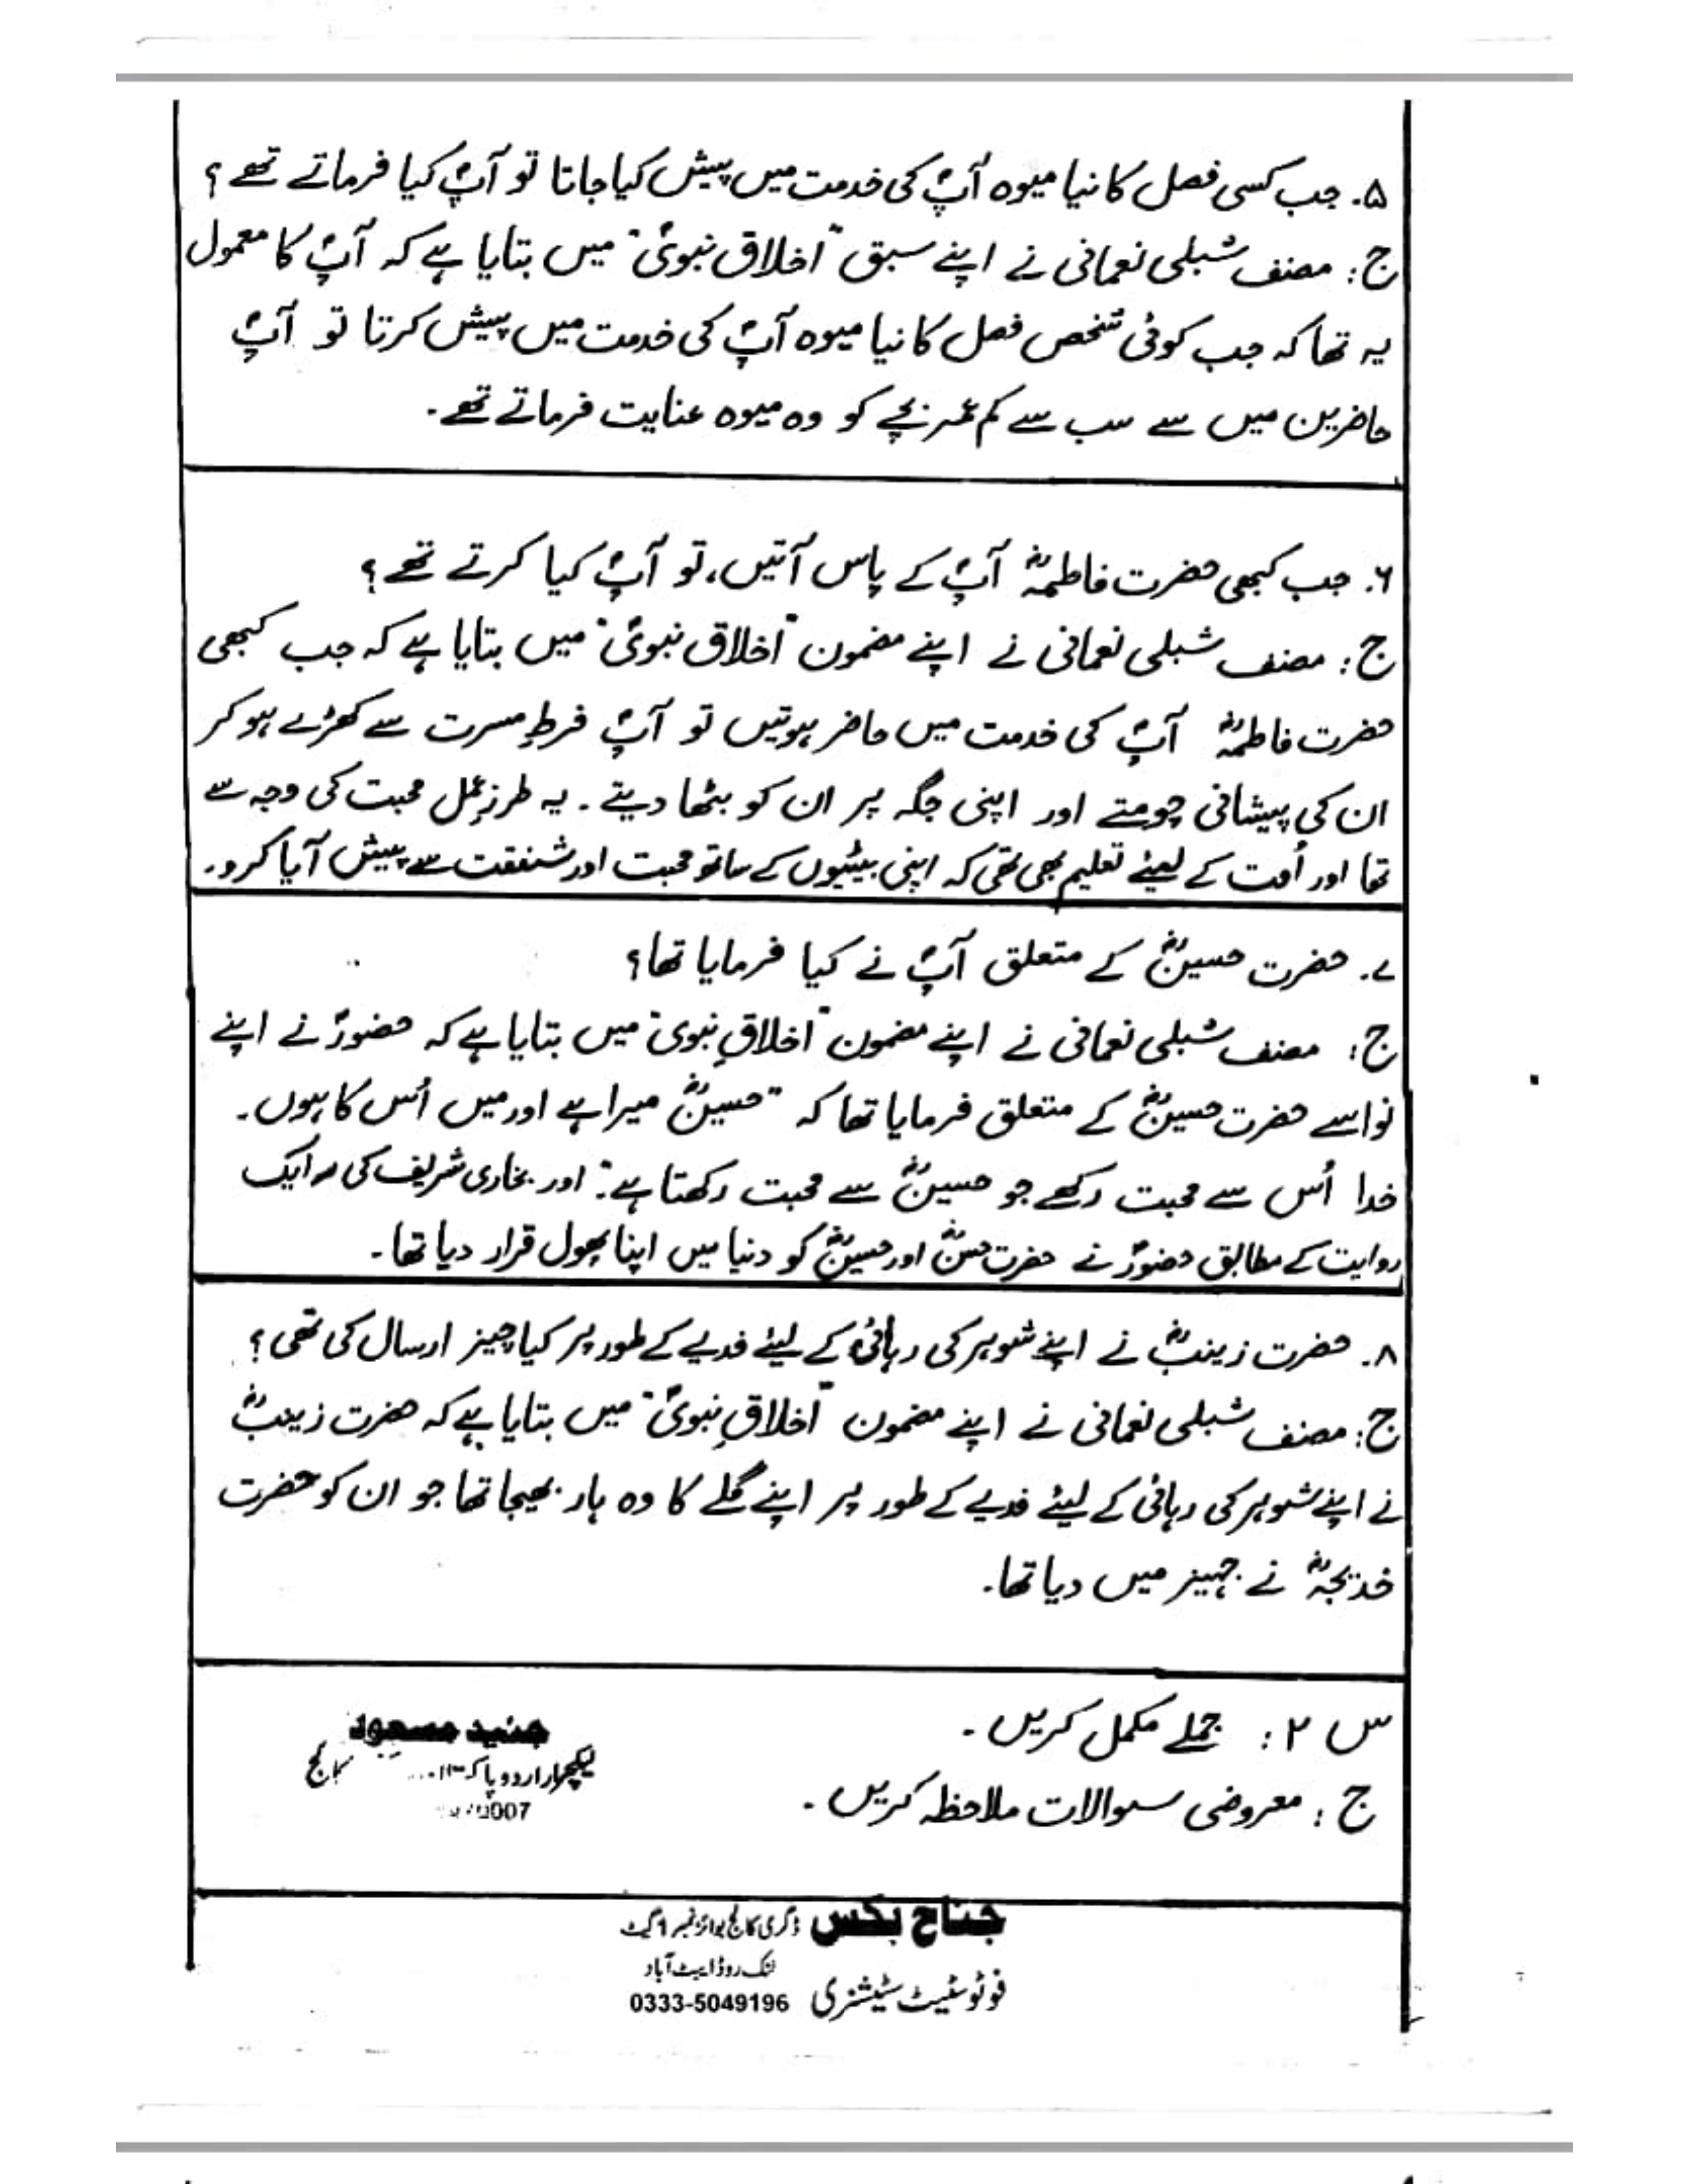 ۵. جب کسی فصل کا نیا میوہ آپؐ کی خدمت میں پیش کیا جاتا تو آپؐ کیا فرماتے تھے؟
ج: مصنف شبلی نعمانی نے اپنے سبق "اخلاق نبویؐ" میں بتایا ہے کہ آپؐ کا معمول
یہ تھا کہ جب کوئی شخص فصل کا نیا میوہ آپؐ کی خدمت میں پیش کرتا تو آپؐ
حاضرین میں سے سب سے کم عمر بچے کو وہ میوہ عنایت فرماتے تھے۔
۶. جب کبھی حضرت فاطمہؓ آپؐ کے پاس آتیں، تو آپؐ کیا کرتے تھے؟
ج: مصنف شبلی نعمانی نے اپنے مضمون "اخلاق نبویؐ" میں بتایا ہے کہ جب کبھی
حضرت فاطمہؓ آپؐ کی خدمت میں حاضر ہوتیں تو آپؐ فرطِ مسرت سے کھڑے ہو کر
ان کی پیشانی چومتے اور اپنی جگہ پر ان کو بٹھا دیتے۔ یہ طرزِ عمل محبت کی وجہ سے
تھا اور اُمت کے لیئے تعلیم بھی تھی کہ اپنی بیٹیوں کے ساتھ محبت اور شفقت سے پیش آیا کرو۔
۷. حضرت حسینؓ کے متعلق آپؐ نے کیا فرمایا تھا؟
ج: مصنف شبلی نعمانی نے اپنے مضمون "اخلاقِ نبوی" میں بتایا ہے کہ حضورؐ نے اپنے
نواسے حضرت حسینؓ کے متعلق فرمایا تھا کہ "حسینؓ میرا ہے اور میں اُس کا ہوں۔
خدا اُس سے محبت رکھے جو حسینؓ سے محبت رکھتا ہے"۔ اور بخاری شریف کی ایک
روایت کے مطابق حضورؐ نے حضرت حسنؓ اور حسینؓ کو دنیا میں اپنا پھول قرار دیا تھا۔
۸. حضرت زینبؓ نے اپنے شوہر کی رہائی کے لیئے فدیے کے طور پر کیا چیز ارسال کی تھی؟
ج: مصنف شبلی نعمانی نے اپنے مضمون "اخلاقِ نبویؐ" میں بتایا ہے کہ حضرت زینبؓ
نے اپنے شوہر کی رہائی کے لیئے فدیے کے طور پر اپنے گلے کا وہ ہار بھیجا تھا جو ان کو حضرت
خدیجہؓ نے جہیز میں دیا تھا۔
س ۲: جملے مکمل کریں۔
جنید مسعود
لیکچرار اردو
ج: معروضی سوالات ملاحظہ کریں۔
جناح بکس ڈگری کالج بوائز نمبر ۱ گیٹ
لنک روڈ ایبٹ آباد
فوٹوسٹیٹ سٹیشنری 0333-5049196